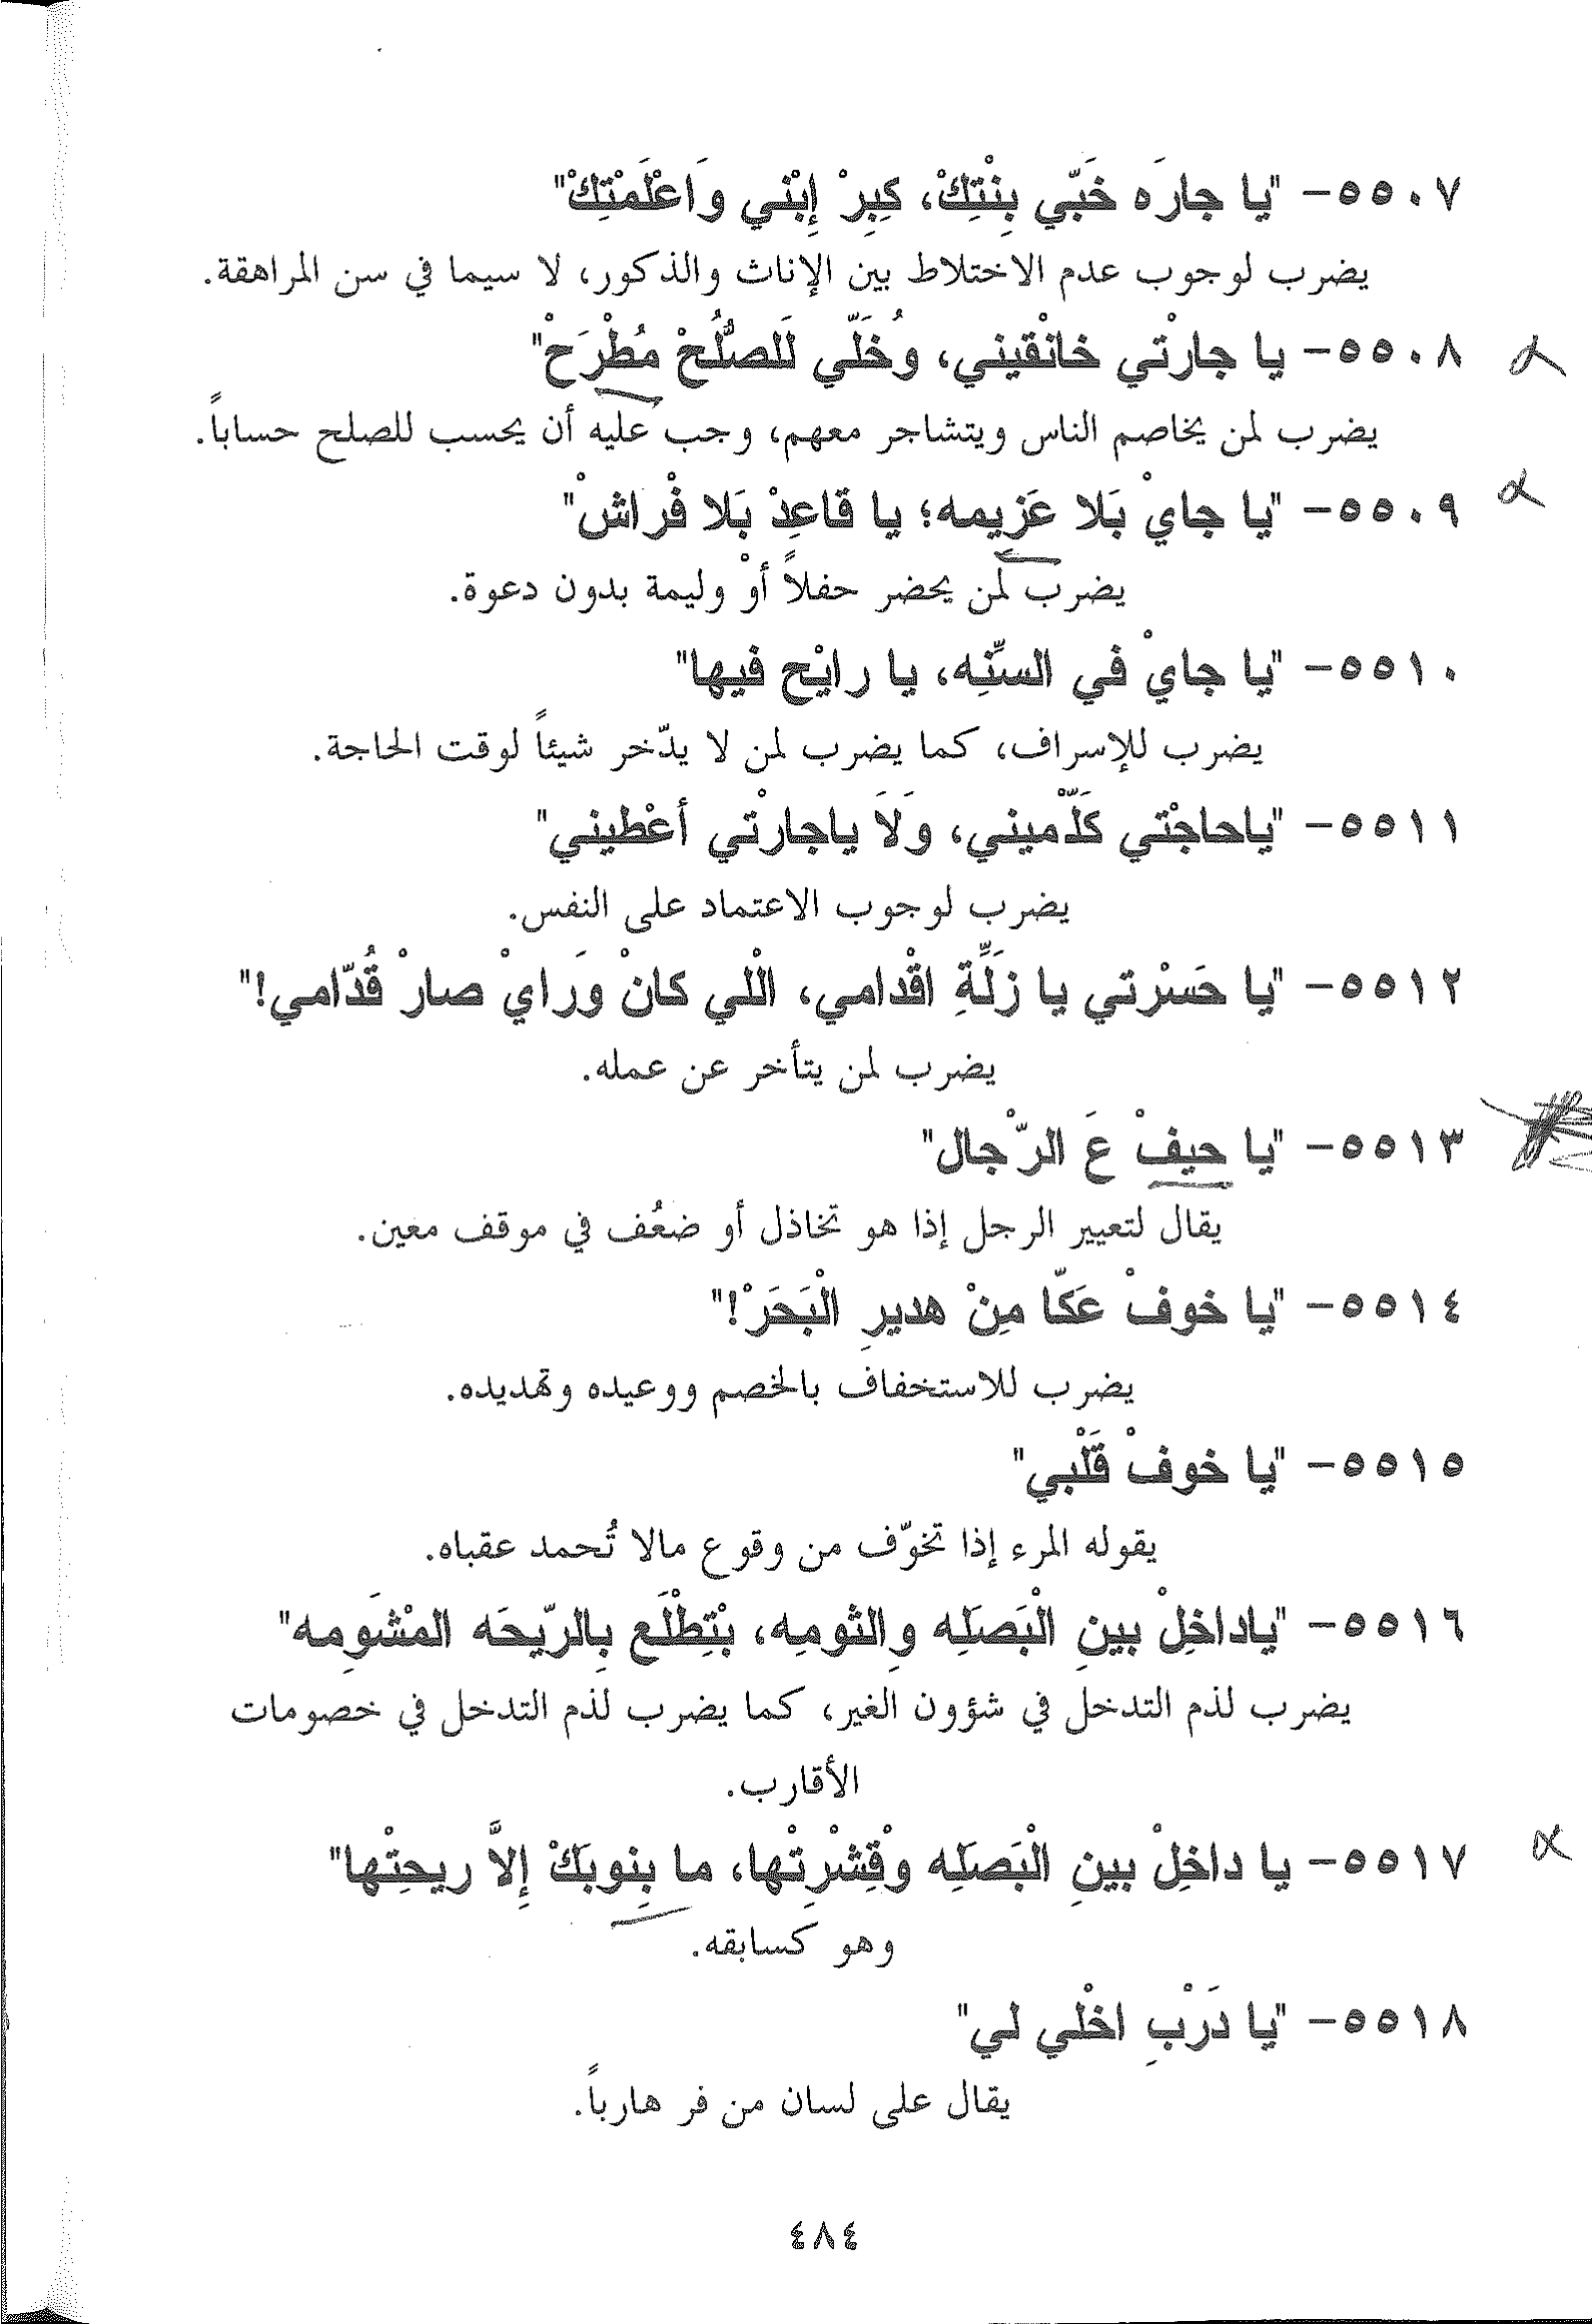 ٥٥٠٧- "يا جارَه خَبّي بِنْتِكْ، كبِرْ إِبْني وَاعْلَمْتِكْ"
يضرب لوجوب عدم الاختلاط بين الإناث والذكور، لا سيما في سن المراهقة.
٥٥٠٨- يا جارْتي خانْقيني، وُخَلّي لَلصُّلُحْ مُطْرَحْ"
يضرب لمن يخاصم الناس ويتشاجر معهم، وجب عليه أن يحسب للصلح حساباً.
٥٥٠٩- "يا جايْ بَلا عَزيمه؛ يا قاعِدْ بَلا فْراشْ"
يضرب لمن يحضر حفلاً أوْ وليمة بدون دعوة.
٥٥١٠- "يا جايْ في السّنِه، يا رايْح فيها"
يضرب للإسراف، كما يضرب لمن لا يدّخر شيئاً لوقت الحاجة.
٥٥١١- "ياحاجْتي كَلّْميني، وَلَا ياجارْتي أعْطيني"
يضرب لوجوب الاعتماد على النفس.
٥٥١٢- "يا حَسْرتي يا زَلِّةِ اقْدامي، الْلي كانْ وَرايْ صارْ قُدّامي!"
يضرب لمن يتأخر عن عمله.
٥٥١٣- "يا حيفْ عَ الرّْجال"
يقال لتعيير الرجل إذا هو تخاذل أو ضعُف في موقف معين.
٥٥١٤- "يا خوفْ عَكّا مِنْ هديرِ الْبَحَرْ!"
يضرب للاستخفاف بالخصم ووعيده وتهديده.
٥٥١٥- "يا خوفْ قَلْبي"
يقوله المرء إذا تخوّف من وقوع مالا تُحمد عقباه.
٥٥١٦- "ياداخِلْ بينِ الْبَصَلِه وِالثومِه، بْتِطْلَع بِالرّيحَه المْشَومِه"
يضرب لذم التدخل في شؤون الغير، كما يضرب لذم التدخل في خصومات
الأقارب.
٥٥١٧- يا داخِلْ بينِ الْبَصَلِه وْقِشْرِتْها، ما بِنوبَكْ إِلاَّ ريحِتْها"
وهو كسابقه.
٥٥١٨- "يا دَرْبِ اخْلي لي"
يقال على لسان من فر هارباً.
٤٨٤